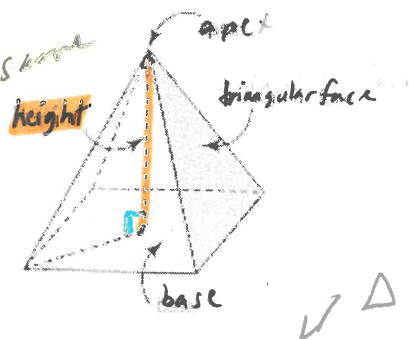 apex
height
triangular face
base